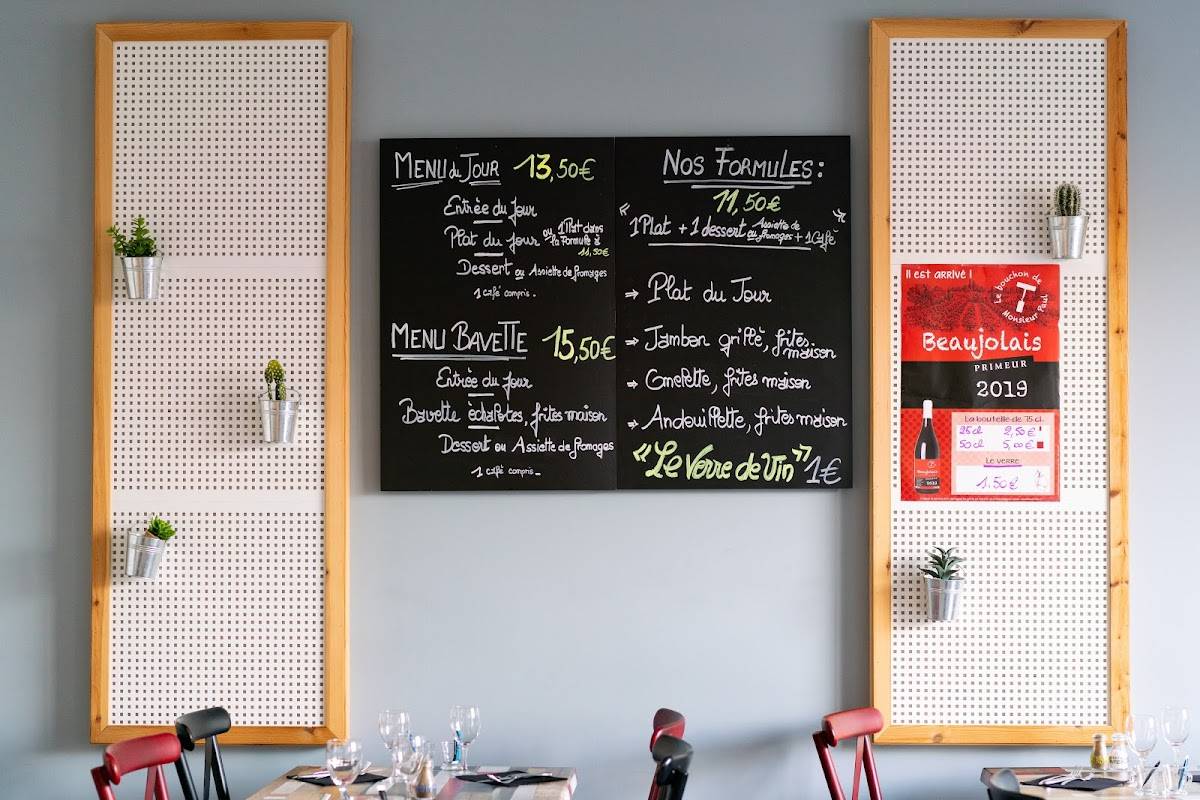 MENU du JOUR 13,50€
Entrée du Jour
Plat du jour ou 1 Plat dans
la Formule à
11,50€
Dessert ou Assiette de fromages
1 café compris_
MENU BAVETTE 15,50€
Entrée du Jour
Bavette échalotes, frites maison
Dessert ou Assiette de fromages
1 café compris_
NOS FORMULES :
11,50€
"1 Plat + 1 dessert ou Assiette de
fromages + 1 Café"
⇒ Plat du Jour
⇒ Jambon grillé, frites
maison
⇒ Omelette, frites maison
⇒ Andouillette, frites maison
"Le Verre de Vin" 1€
Il est arrivé !
Le bouchon de
Monsieur Paul
Beaujolais
PRIMEUR
2019
La bouteille de 75 cl.
25cl 2,50€
50cl 5,00€
Le verre
1.50€
Beaujolais